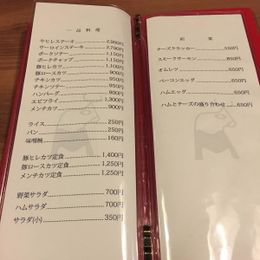 一品料理
牛ヒレステーキ 2,900円
サーロインステーキ 2,300円
ポークソテー 1,150円
ポークチャップ 1,150円
豚ヒレカツ 1,100円
豚ロースカツ
チキンカツ
チキンソテー
ハンバーグ
エビフライ
メンチカツ
ライス 250円
パン 250円
味噌椀 160円
豚ヒレカツ定食 1,400円
豚ロースカツ定食 1,250円
メンチカツ定食 1,250円
野菜サラダ 700円
ハムサラダ 700円
サラダ(小) 350円
前菜
チーズクラッカー 550円
スモークサーモン 850円
オムレツ 650円
ベーコンエッグ 650円
ハムエッグ 650円
ハムとチーズの盛り合わせ 650円